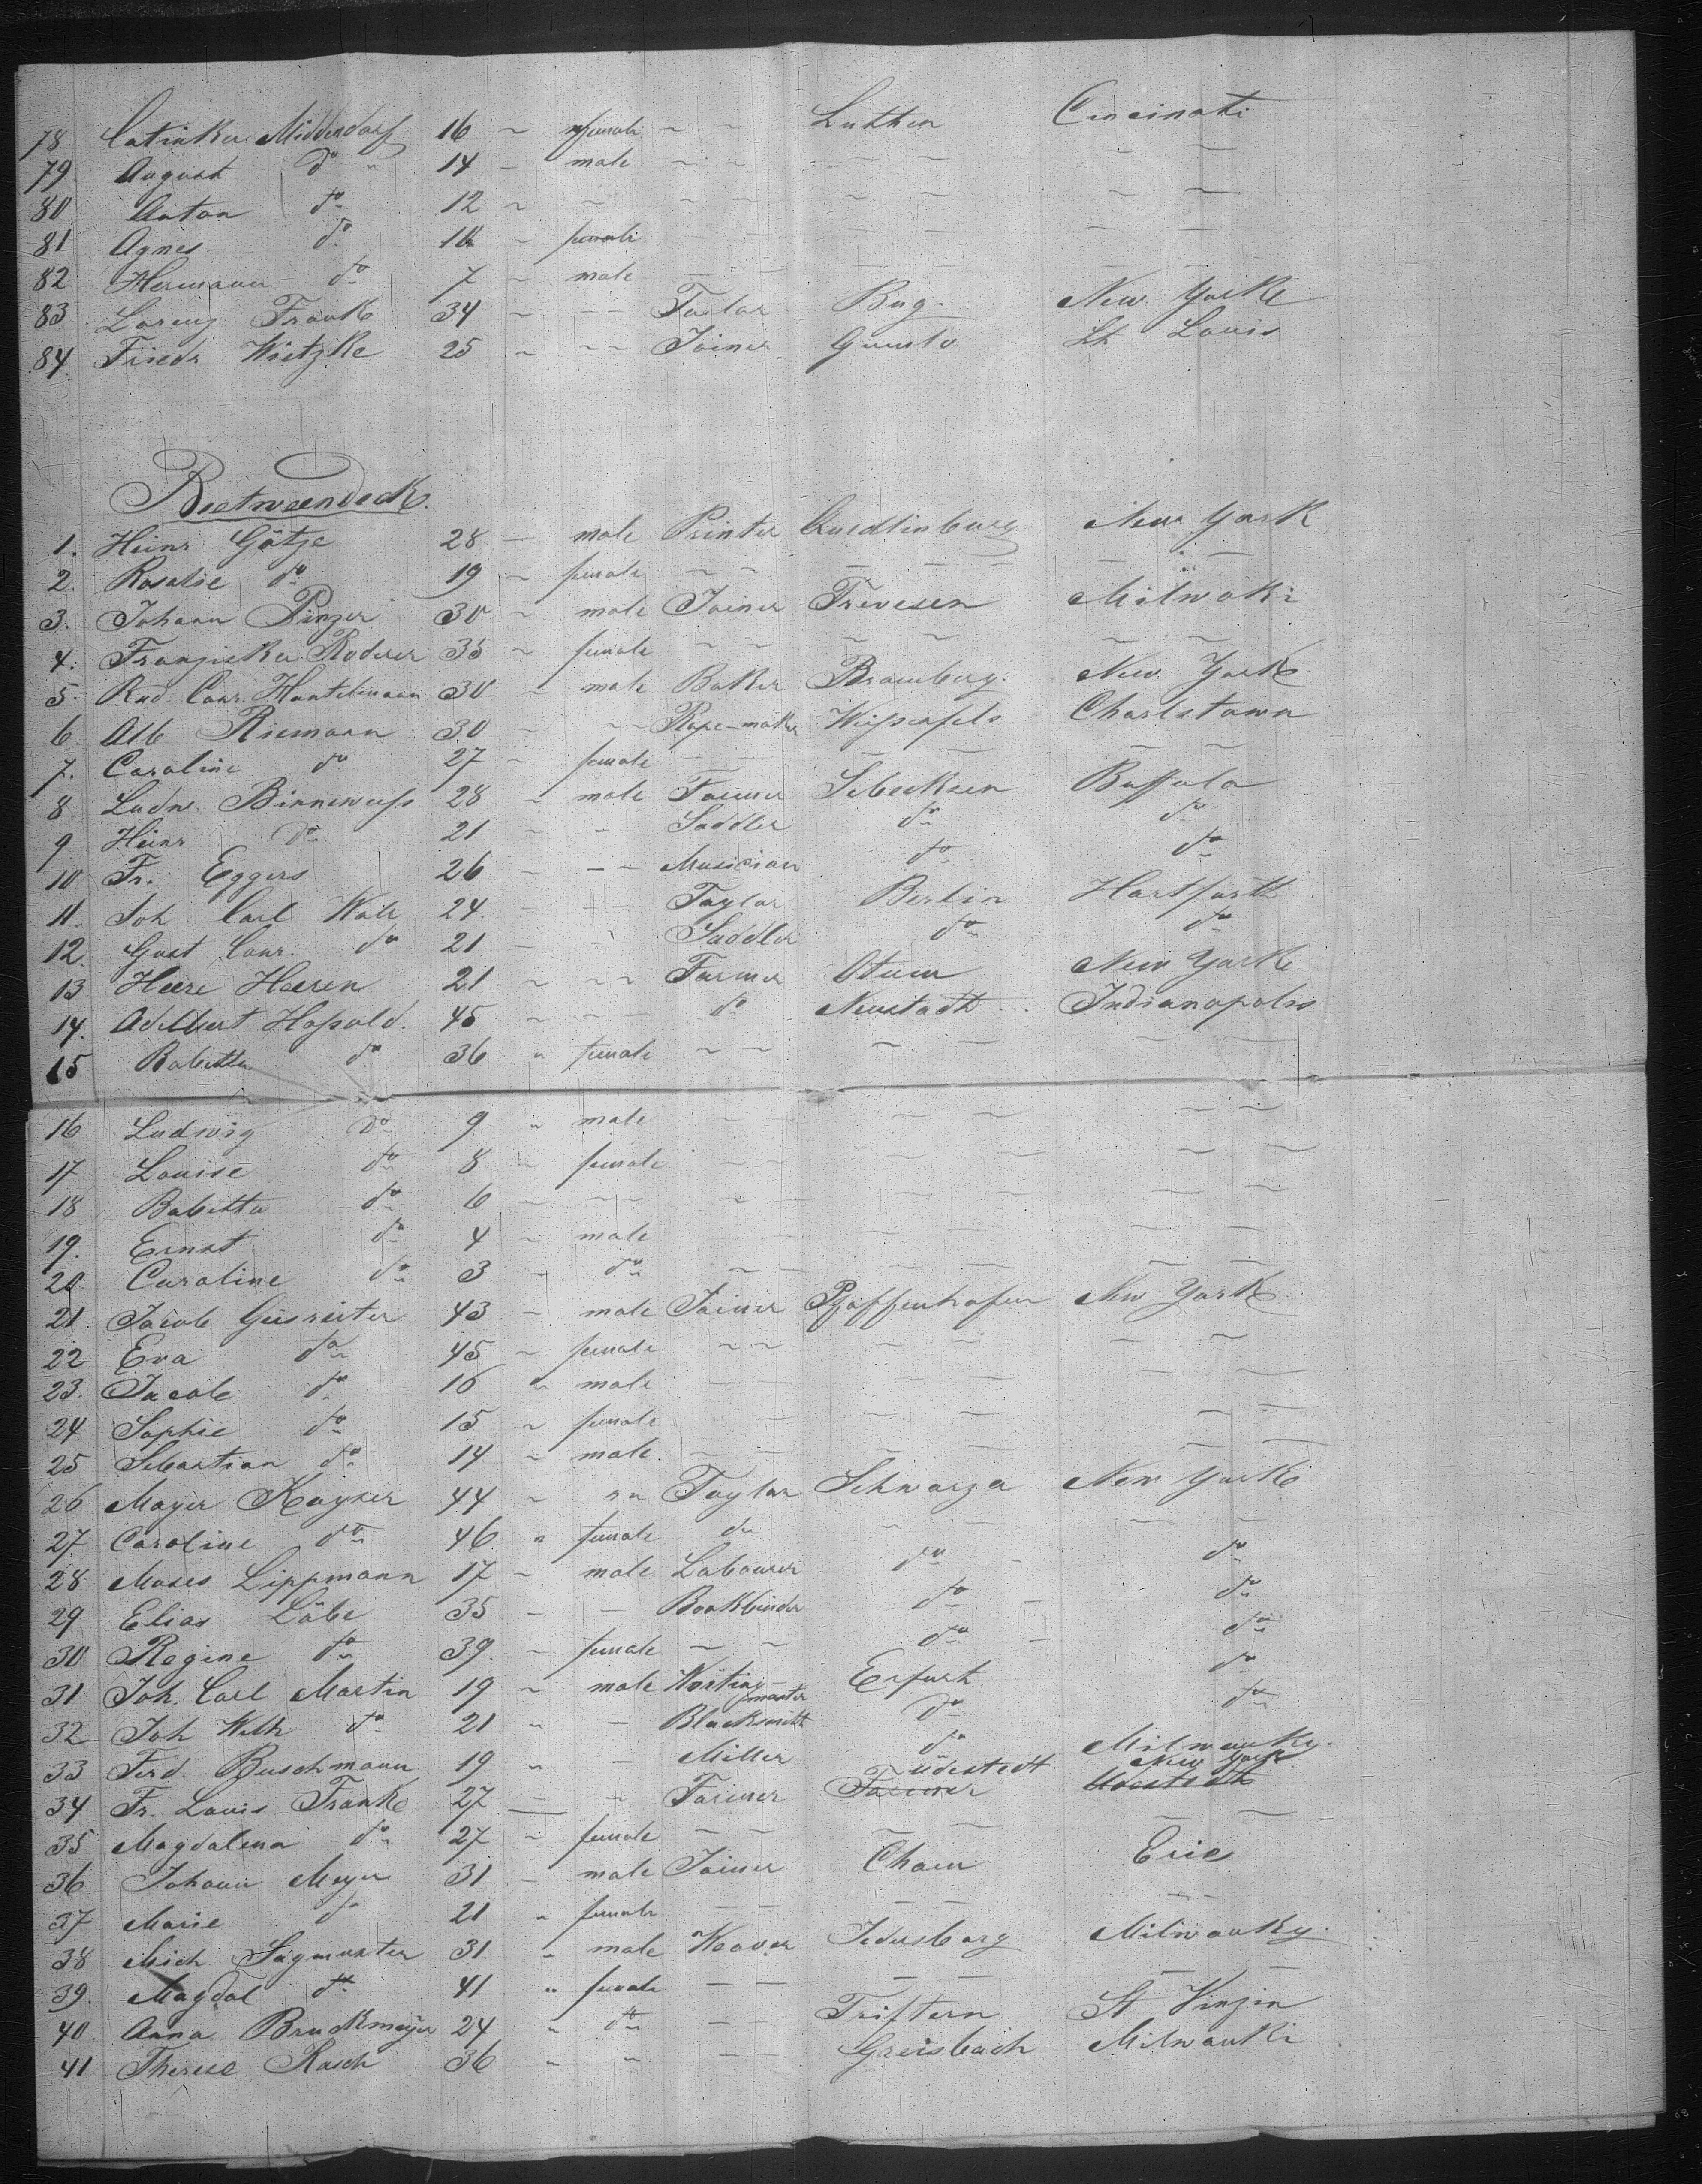 78 Catinka Middendorf 16 ~ female ~ ~ Lutten Cincinati
79 August do 14 - male ~ ~ ~ ~ ~ ~
80 Anton do 12 ~ ~ ~ ~ ~ ~ ~ ~
81 Agnes do ~ female ~ ~ ~ ~ ~ ~
82 Hermann do 7 ~ male ~ ~ ~ ~ ~ ~
83 Lorenz Frank 34 ~ ~ Tailor Bug. New York
84 Friedr Wietzke 25 ~ ~ ~ Joiner St Louis
Beetweendeck.
1. Heinr Götze 28 - male Printer Quedlinburg New York
2. Rosalie do 19 ~ female ~ ~ ~ ~ ~ ~
3. Johann Pinzer 30 ~ male Joiner Trevesen Milwoki
4. Franziska Roderer 35 ~ female ~ ~ ~ ~ ~ ~
5. Rud. Conr. Hantelmann 30 ~ male Baker Bromberg. New York
6. Alb Riemann 30 ~ ~ ~ Rope-maker Weißenfels Charlstown
7. Caroline do 27 ~ female ~ ~ ~ ~ ~ ~
8 Ludw. Binneweiss 28 ~ male Farmer Sebecksen Buffalo
9 Heinr do 21 ~ ~ Saddler do do
10 Fr. Eggers 26 ~ ~ ~ Musician do do
11. Joh Carl 24. ~ ~ ~ Taylor Berlin Hartforth
12. Gust Conr. do 21 ~ ~ Saddler do do
13 Heere Heeren 21 ~ ~ ~ Farmer New York
14. Adelbert Hassold. 45 ~ ~ ~ do Neustadt Indianopolis
15 Babetta do 36 " female ~ ~ ~ ~ ~ ~
16 Ludwig do 9 " male ~ ~ ~ ~ ~ ~
17 Louise do 8 ~ female ~ ~ ~ ~ ~ ~
18 Babetta do 6 ~ ~ ~ ~ ~ ~ ~ ~ ~
19. Ernst do 4 ~ male ~ ~ ~ ~ ~ ~
20. Caroline do 3 ~ do ~ ~ ~ ~ ~ ~
21. Jacob Geisreiter 43 ~ male Joiner Pfaffenhofen New York
22 Eva do 45 ~ female ~ ~ ~ ~ ~ ~
23. Jacob do 16 " male ~ ~ ~ ~ ~ ~
24 Sophie do 15 ~ female ~ ~ ~ ~ ~ ~
25 Sebastian do 14 ~ male. ~ ~ ~ ~ ~ ~
26 Mayer Kayser 44 ~ ~ Taylor Schwarza New York
27 Caroline do 46. " female do ~ ~ ~ ~
28 Moses Lippmann 17 ~ male Labourer do do
29 Elias Löbe 35 ~ ~ Bookbinder do do
30 Regine do 39. ~ female ~ ~ do do
31 Joh. Carl Martin 19 ~ male master Erfurt do
32 Joh Wilh do 21 " ~ Blacksmith do do
33 Ferd. Buschmann 19 " ~ Miller do Milwauky.
34 Fr. Louis Frank 27 ~ ~ Farmer Farmer Udestedt Udestedt New York
35 Magdalena do 27 ~ female ~ ~ ~ ~ ~ ~
36 Johann Meyer 31 ~ male Joiner Cham Erie
37 Marie do 21 " female ~ ~ ~ ~ ~ ~
38 Mich Sagmuster 31 " male Weaver Milwauky.
39. Magdal do 41 " female ~ ~ ~ ~ ~ ~
40. Anna Bruckmeyer 24 " do ~ Triftern St Vinzin
41 Therese Rasch 36 " ~ ~ ~ Greisbach Milwauki